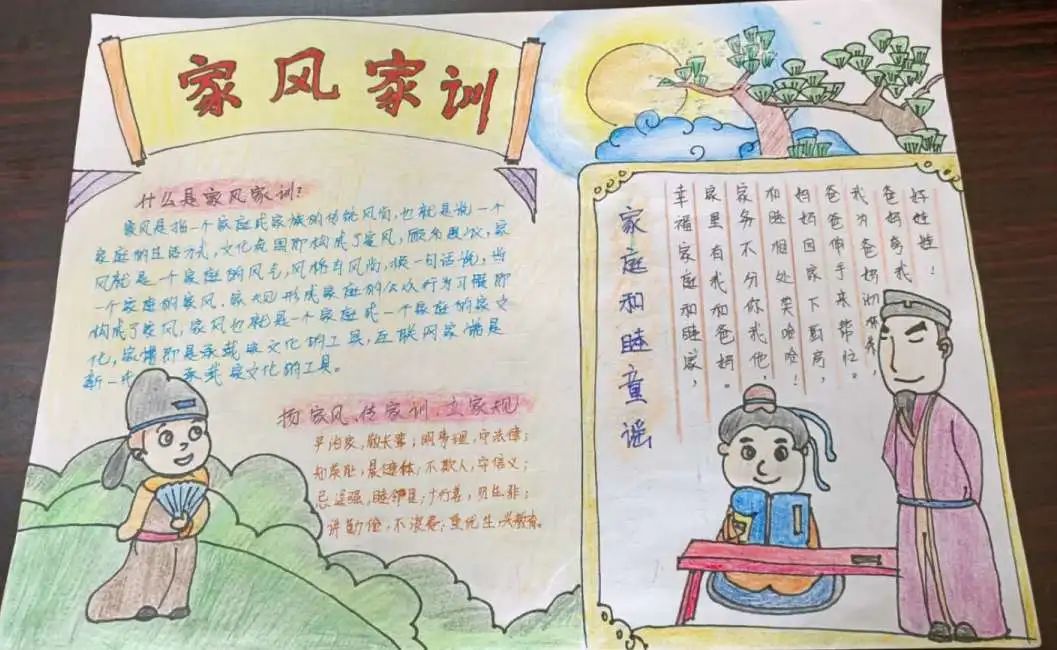 家风家训
什么是家风家训:
家风是指一个家庭或家族的传统风尚,也就是说一个
家庭的生活方式,文化氛围即构成了家风,顾名思议,家
风就是一个家庭的风气,风格与风尚,换一句话说,当
一个家庭的家风、家规形成家庭的公众行为习惯即
构成了家风,家风也就是一个家庭或一个家庭的家文
化,家谱即是承载家文化的工具,互联网家谱是
新一 承载家文化的工具。
扬家风、传家训、立家规
孝治家,敬长辈;明事理,守法律;
知荣耻,晨 体;不欺人,守信义;
忌逞强,睦邻里;行善, 非;
讲勤俭,不浪费;重优生,兴教育。
家庭和睦童谣
好娃娃!
爸妈 我
我为爸妈沏杯茶,
爸爸伸手来帮忙。
妈妈回家下厨房,
和睦相处笑哈哈!
家务不分你我他,
家里有我和爸妈。
幸福家庭和睦家,